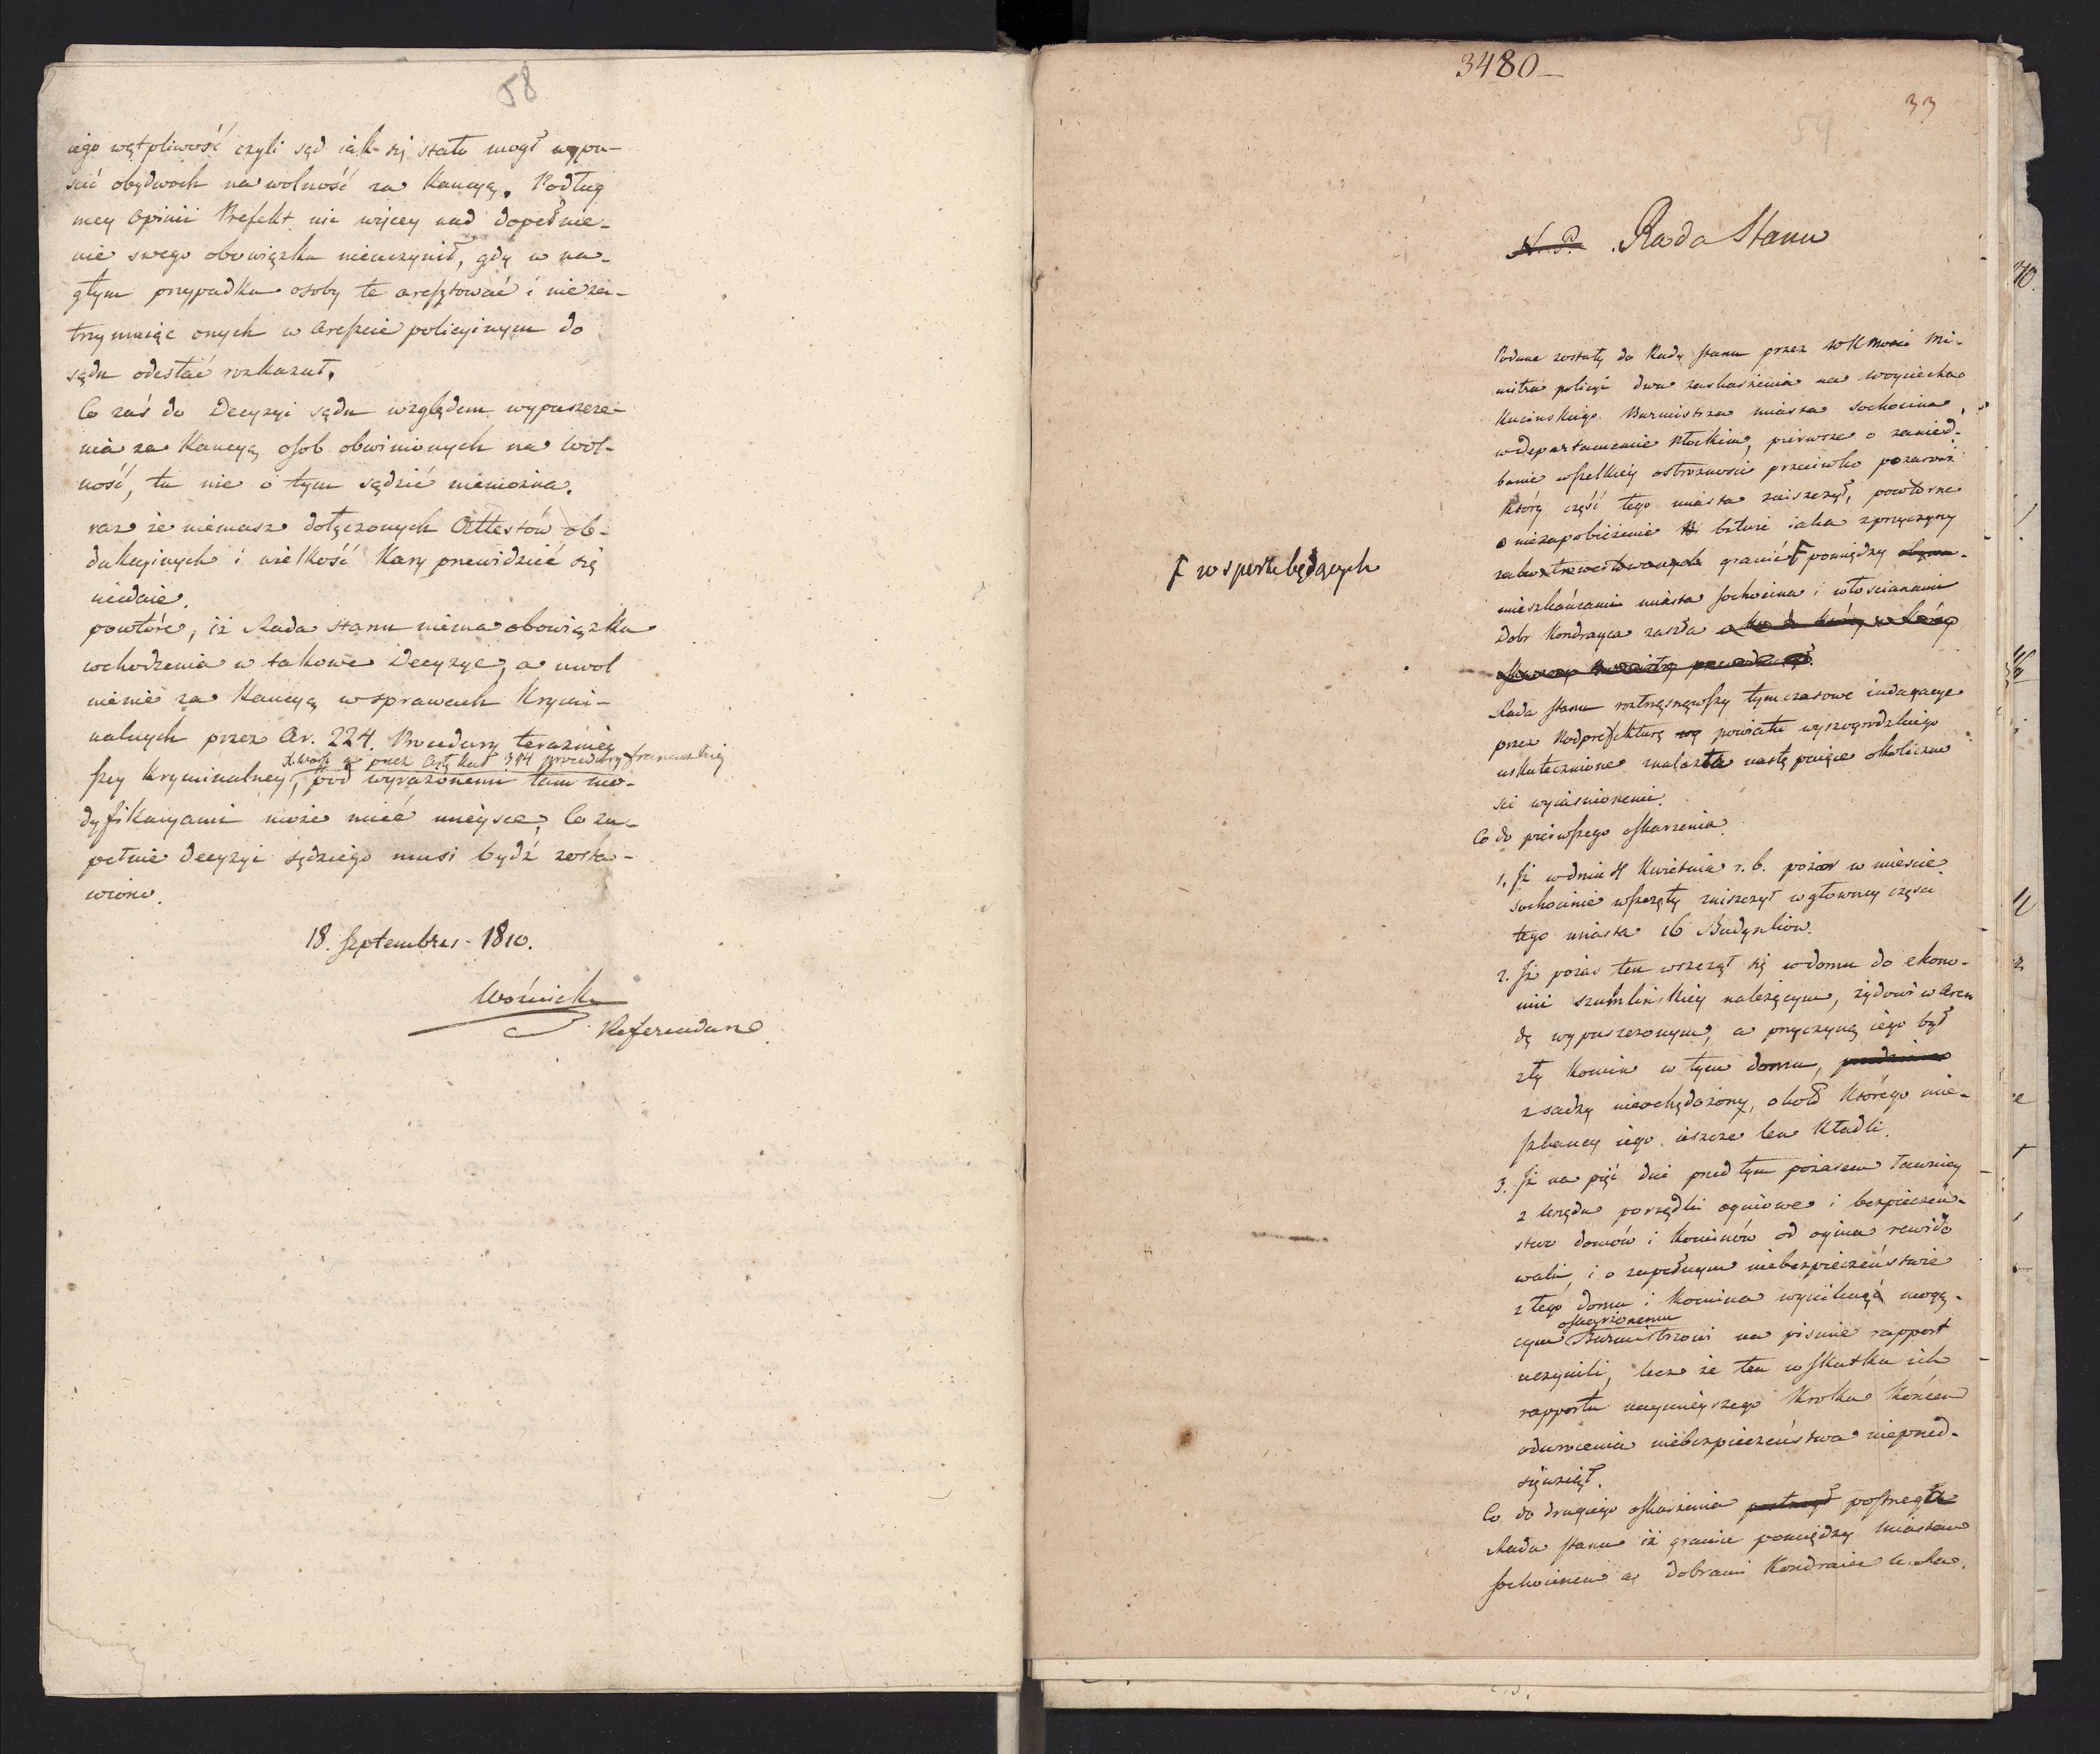 58
iego wątpliwość czyli sąd iak się stało mogł wypu-
scić obydwoch na wolność za Kaucyą. Podług
mey opinii Prefekt nic więcey nad dopełnie-
nie swego obowiązku nieuczynił, gdy w na-
głym przypadku osoby te aresztować i nieza-
trzymuiąc onych w Areszcie policyinym do
sądu odesłać rozkazał.
Co zaś do Decyzyi sądu względem wypuszcze-
nia za Kaucyą osob obwinionych na wol-
ność, tu nie o tym sądzić niemożna.
raz że niemasz dołączonych Attestów ob-
dukcyinych i wielkość Kary przewidzieć się
nieduie.
powtóre, iż Rada stanu niema obowiązku
wchodzenia w takowe Decyzye, a uwol
nienie za Kaucyą w sprawach Krymi-
nalnych przez Ar. 224. Procedury teraźniey
przez Arty 314 procedury francuzkiey
szey Kryminalney, pod wyrażonemi tam mo-
dyfikacyami może mieć mieysce, Co zu-
pełnie decyzyi sędziego musi bydź zosta-
wione.
18. Septembris. 1810.
Woźnicki
Referendarz
3480
33
59
N. P. Rada Stanu
Podane zostały do Rady stanu przez WKMości Mi-
nistra policyi dwa zaskarżenia na Woyciecha
Kucińskiego Burmistrza miasta Sochocina,
w Departamencie Płockim, pierwsze o zanied-
banie wszelkiey ostrożności przeciwko pożarowi
który część tego miasta zniszczył, powtórne
o niezapobieżenie bitwie iaka z przyczyny
granic Ƒ pomiędzy
Ƒ w sporze będących
mieszkańcami miasta Sochocina i włoscianami
Dobr Kondrayca zaszła
Rada stanu roztrząsnąwszy tymczasowe indagacye
przez Podprefekturę powiatu wyszogrodzkiego
uskutecznione znalazła następuiące okoliczno
sci wyiasnionemi.
Co do pierwszego oskarzenia
1. Iż w dniu 4 Kwietnia r. b. pożar w miescie
Sochocinie wszczęty zniszczył w głowney części
tego miasta 16 Budynków.
2. Iż pożar ten wszczął się w domu do ekono-
mii szumlinskiey należącym, żydowi w Aren
dę wypuszczonym, a przyczyną iego był
zły Komin w tym domu,
z sadzy nieochędożony, około którego mie-
szkancy iego ieszcze len Kładli.
3. Iż na pięć dni przed tym pożarem ławnicy
z Urzędu porządki ogniowe i bezpieczeń-
stwo domów i Kominów od ognia rewido
wali, i o zupełnym niebezpieczeństwie
z tego domu i Komina wyniknąć mogą-
oskarżonemu
cym Burmistrzowi na pismie rapport
uczynili, lecz że ten w skutku ich
rapportu naymnieyszego Kroku Końcem
odwrócenia niebezpieczeństwa nieprzed-
sięwziął.
Co do drugiego oskarżenia postrzegła
Rada stanu iż granice pomiędzy Miastem
Sochocinem a Dobrami Kondraiec